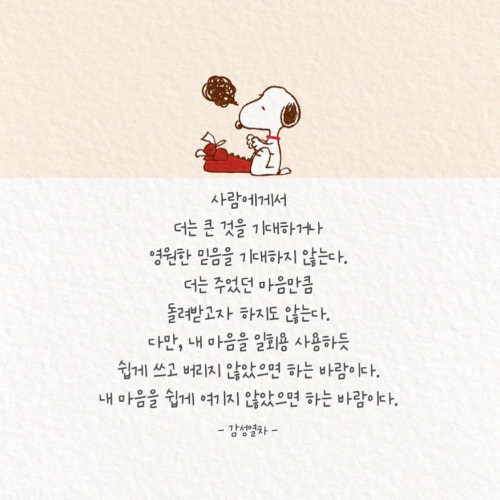 사람에게서
더는 큰 것을 기대하거나
영원한 믿음을 기대하지 않는다.
더는 주었던 마음만큼
돌려받고자 하지도 않는다.
다만, 내 마음을 일회용 사용하듯
쉽게 쓰고 버리지 않았으면 하는 바람이다.
내 마음을 쉽게 여기지 않았으면 하는 바람이다.
- 감성열차 -